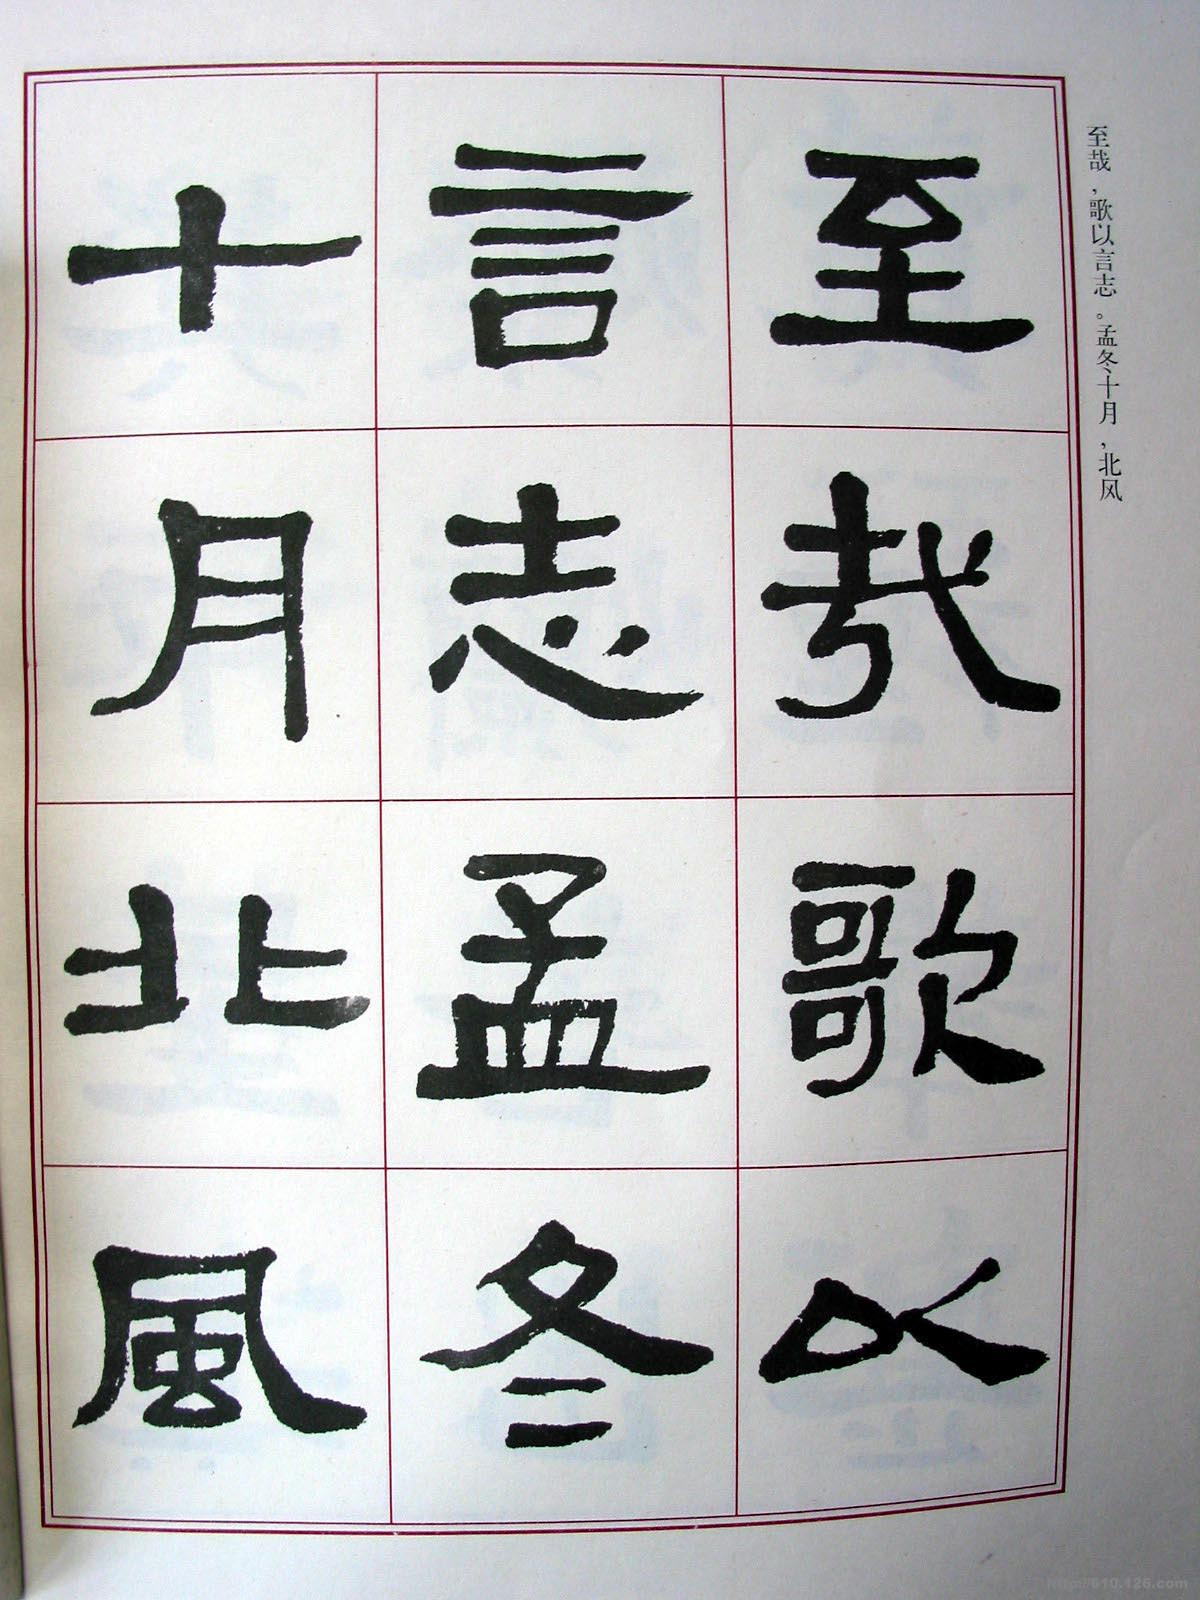 至哉,歌以言志。孟冬十月,北风
至哉歌以
言志孟冬
十月北風
http://610.126.com